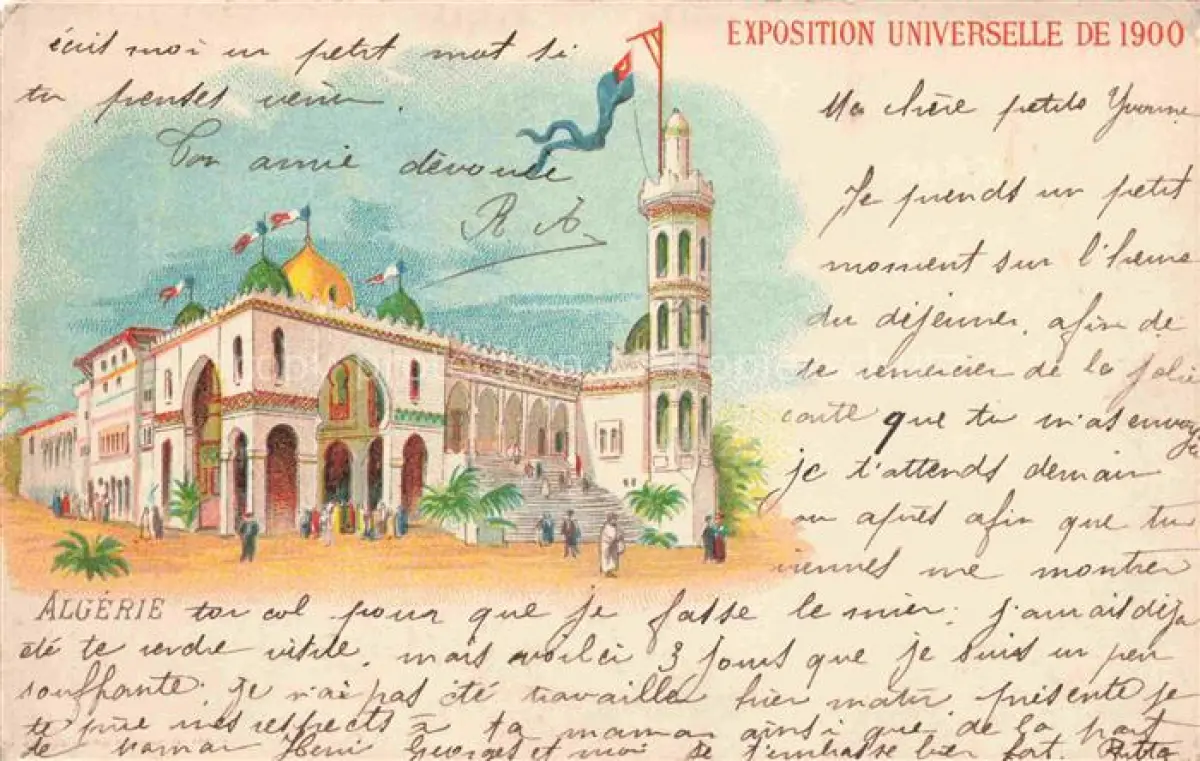 EXPOSITION UNIVERSELLE DE 1900
Ma chère petite Yvonne
Je prends un petit
moment sur l'heure
du déjeuner, afin de
te remercier de la jolie
carte que tu m'as envoyée
je t'attends demain
ou après afin que tu
viennes me montrer
ALGÉRIE
ton col pour que je fasse le mien; j'aurais déja
été te rendre visite, mais voilci 3 jours que je suis un peu
souffrante; je n'ai pas été travailla hier matin, présente je
te prie mes respects à ta maman ainsi que de la part
de maman Henri Georges et moi je t'embrasse bien fort.
écris moi un petit mot si
tu penses venir.
Ton amie dévouée
R A